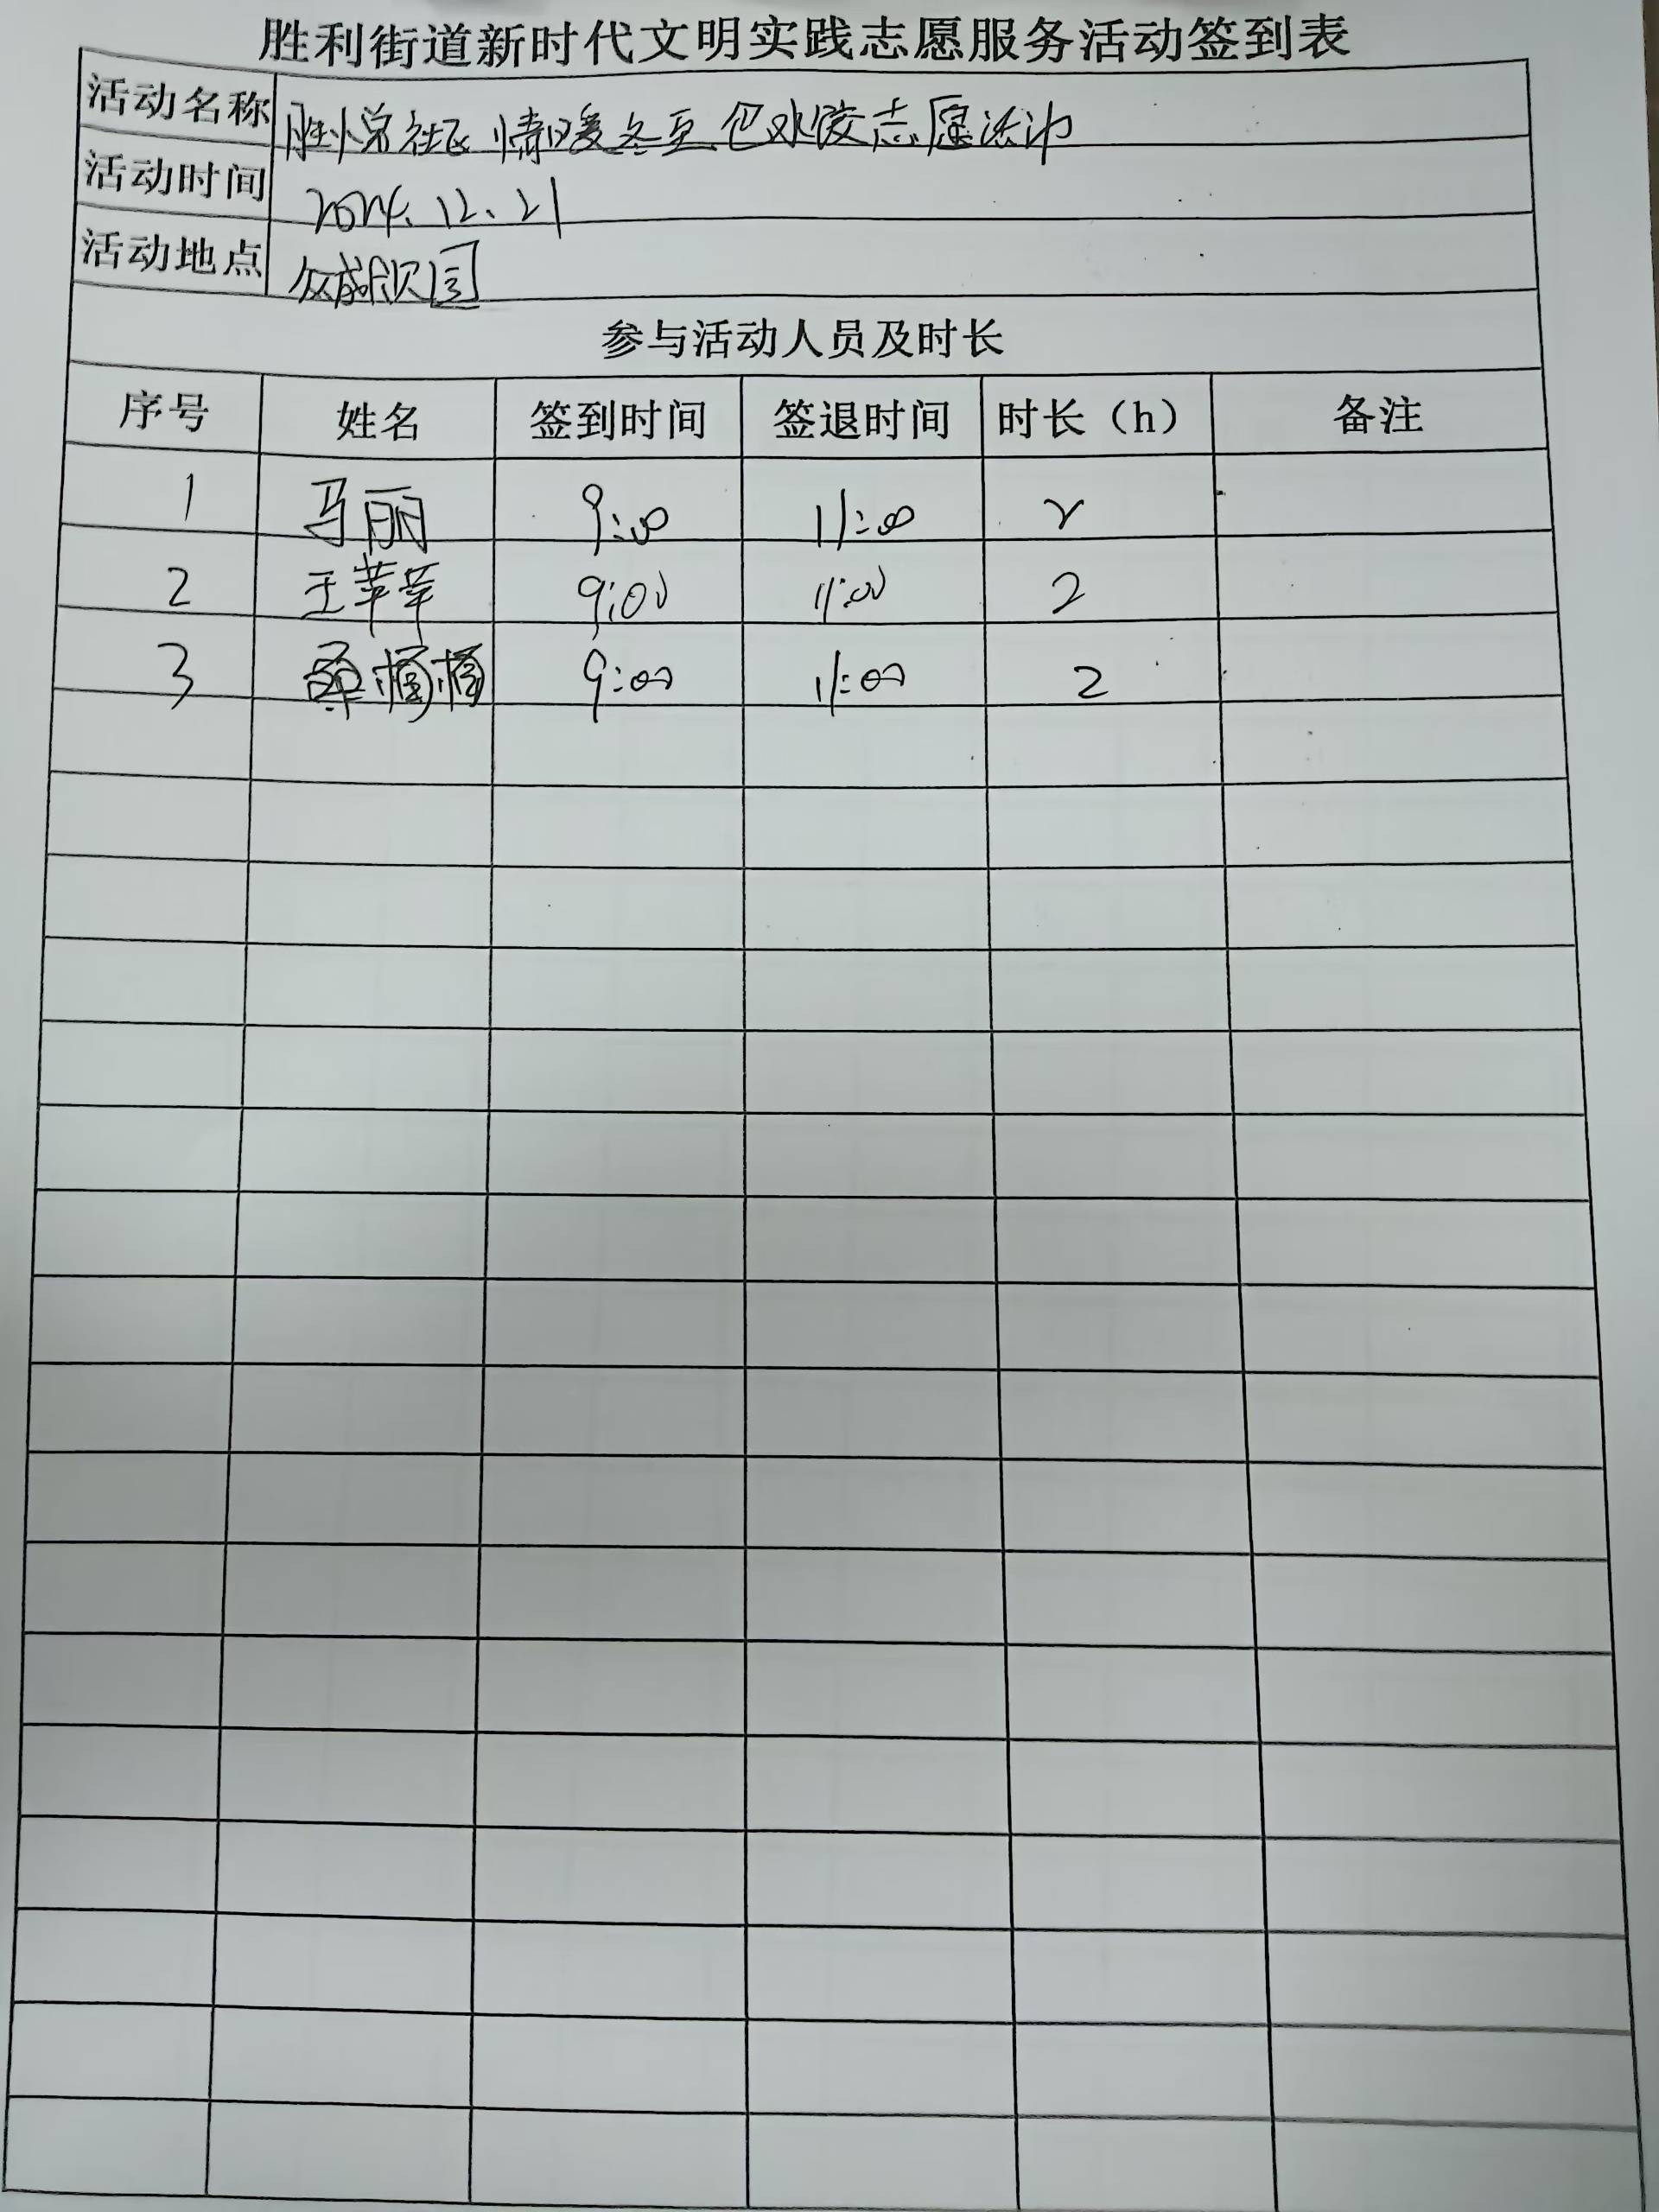 胜利街道新时代文明实践志愿服务活动签到表
活动名称 胜小总社区情暖冬至包水饺志愿活动
活动时间 2024.12.21
活动地点 众成欣园
参与活动人员及时长
序号 姓名 签到时间 签退时间 时长（h） 备注
1 马丽 9:00 11:00 2
2 王苹苹 9:00 11:00 2
3 9:00 11:00 2